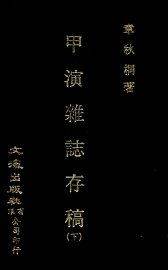 章秋桐著
甲演雜誌存稿(下)
文海出版社有限公司印行